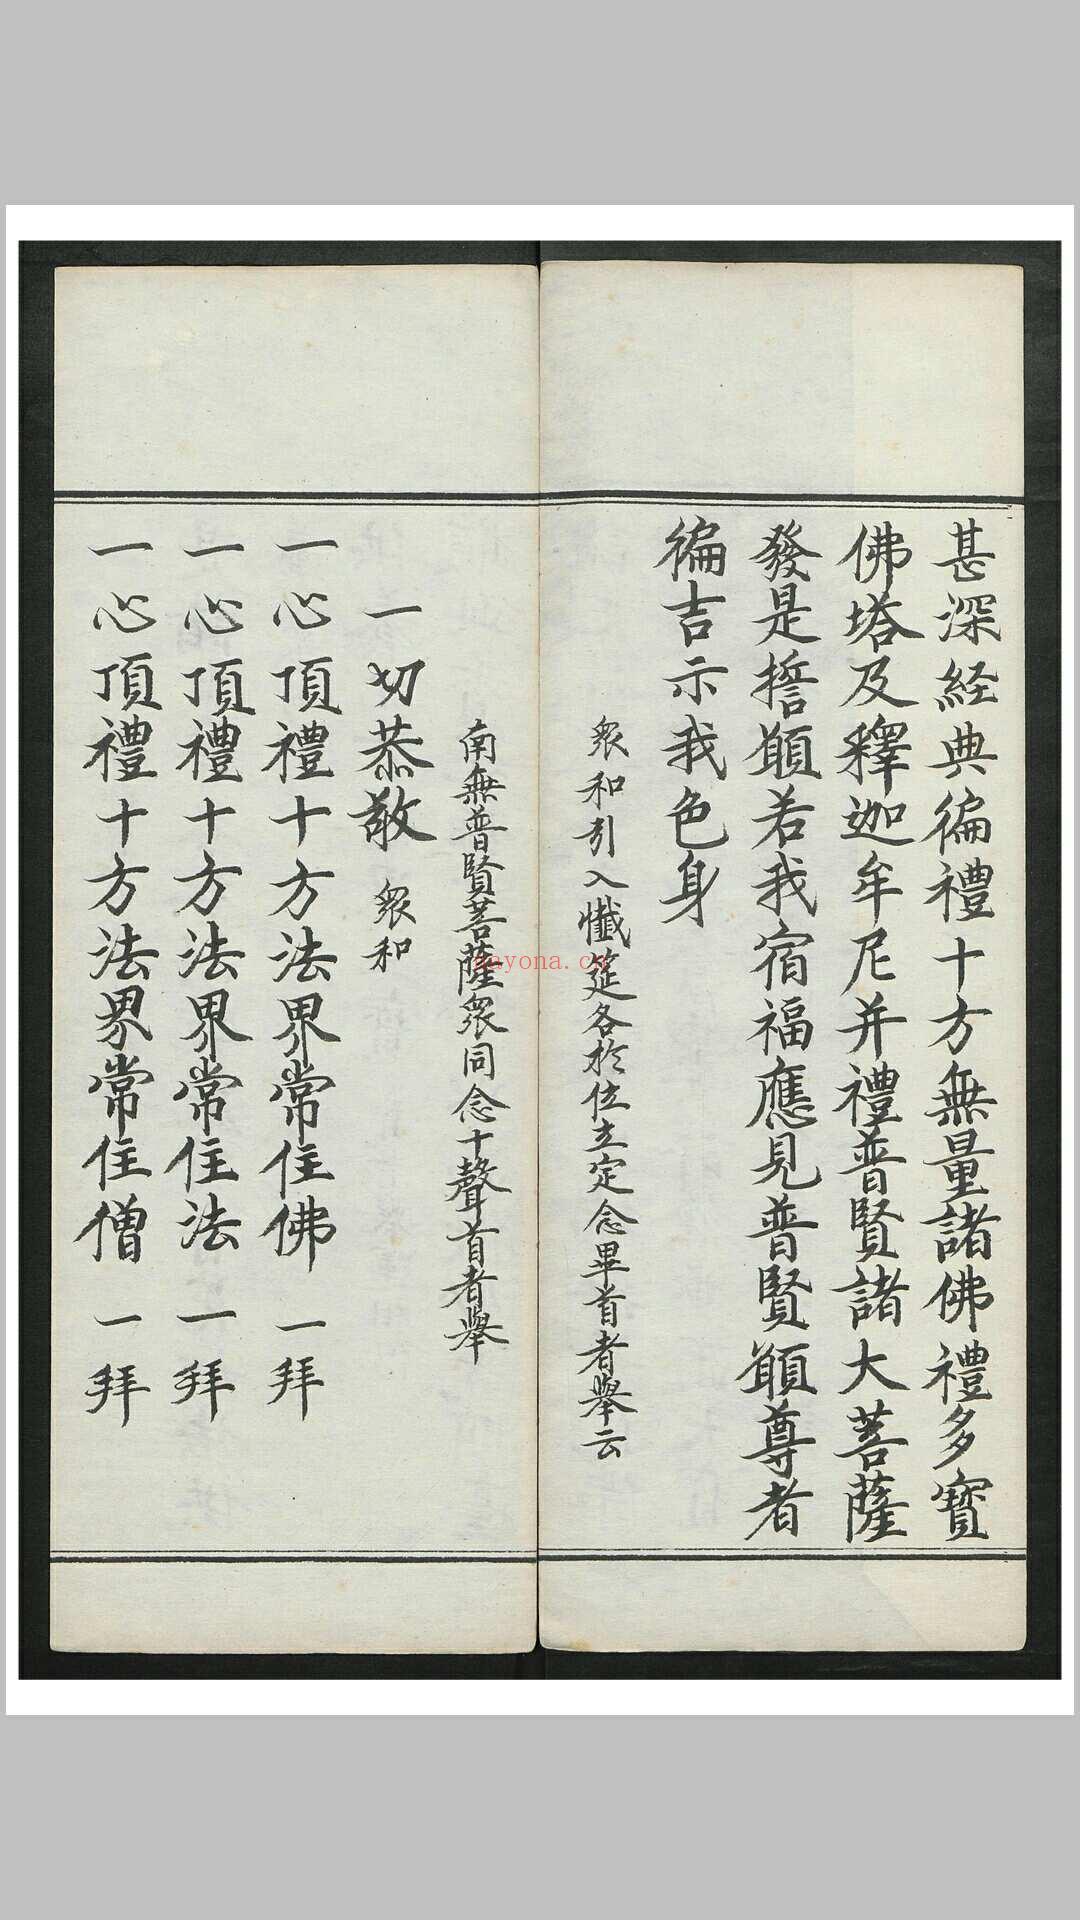 甚深經典徧禮十方無量諸佛禮多寶
佛塔及釋迦牟尼并禮普賢諸大菩薩
發是誓願若我宿福應見普賢願尊者
徧吉示我色身
眾和引入懺筵各於位立定念畢首者舉云
南無普賢菩薩眾同念十聲首者舉
一切恭敬 眾和
一心頂禮十方法界常住佛 一拜
一心頂禮十方法界常住法 一拜
一心頂禮十方法界常住僧 一拜
nayona.cn